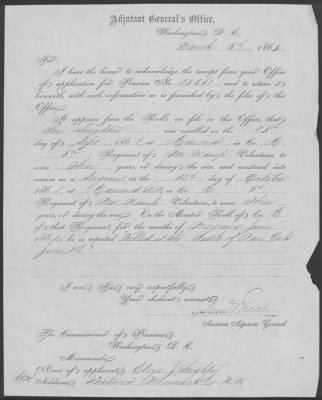 Adjutant General's Office,
Washington, D. C.
March 1864
Sir:
I have the honor to acknowledge the receipt from your Office
of application for Pension No. and to return it
herewith, with such information as is furnished by the files of this
Office.
It appears from the Rolls on file in this Office, that
was enrolled on the 28th
day of Sept, 1861, at Concord in Co. C,
5th Regiment of New Hamp Volunteers, to
serve three years, or during the war, and mustered into
service as a Sergeant on the 12th day of October
1861, at Concord N.H. in Co. C, 5th
Regiment of New Hamp Volunteers, to serve three
years, or during the war. On the Muster Roll of Co. C
of that Regiment, for the months of May and June
1862, he is reported Killed at the Battle of Fair Oaks
June 1st
I am, Sir, very respectfully,
Your obedient servant,
Assistant Adjutant General.
The Commissioner of Pensions,
Washington, D. C.
Memoranda:
Name of applicant, Eliza J.
Address, N.H.